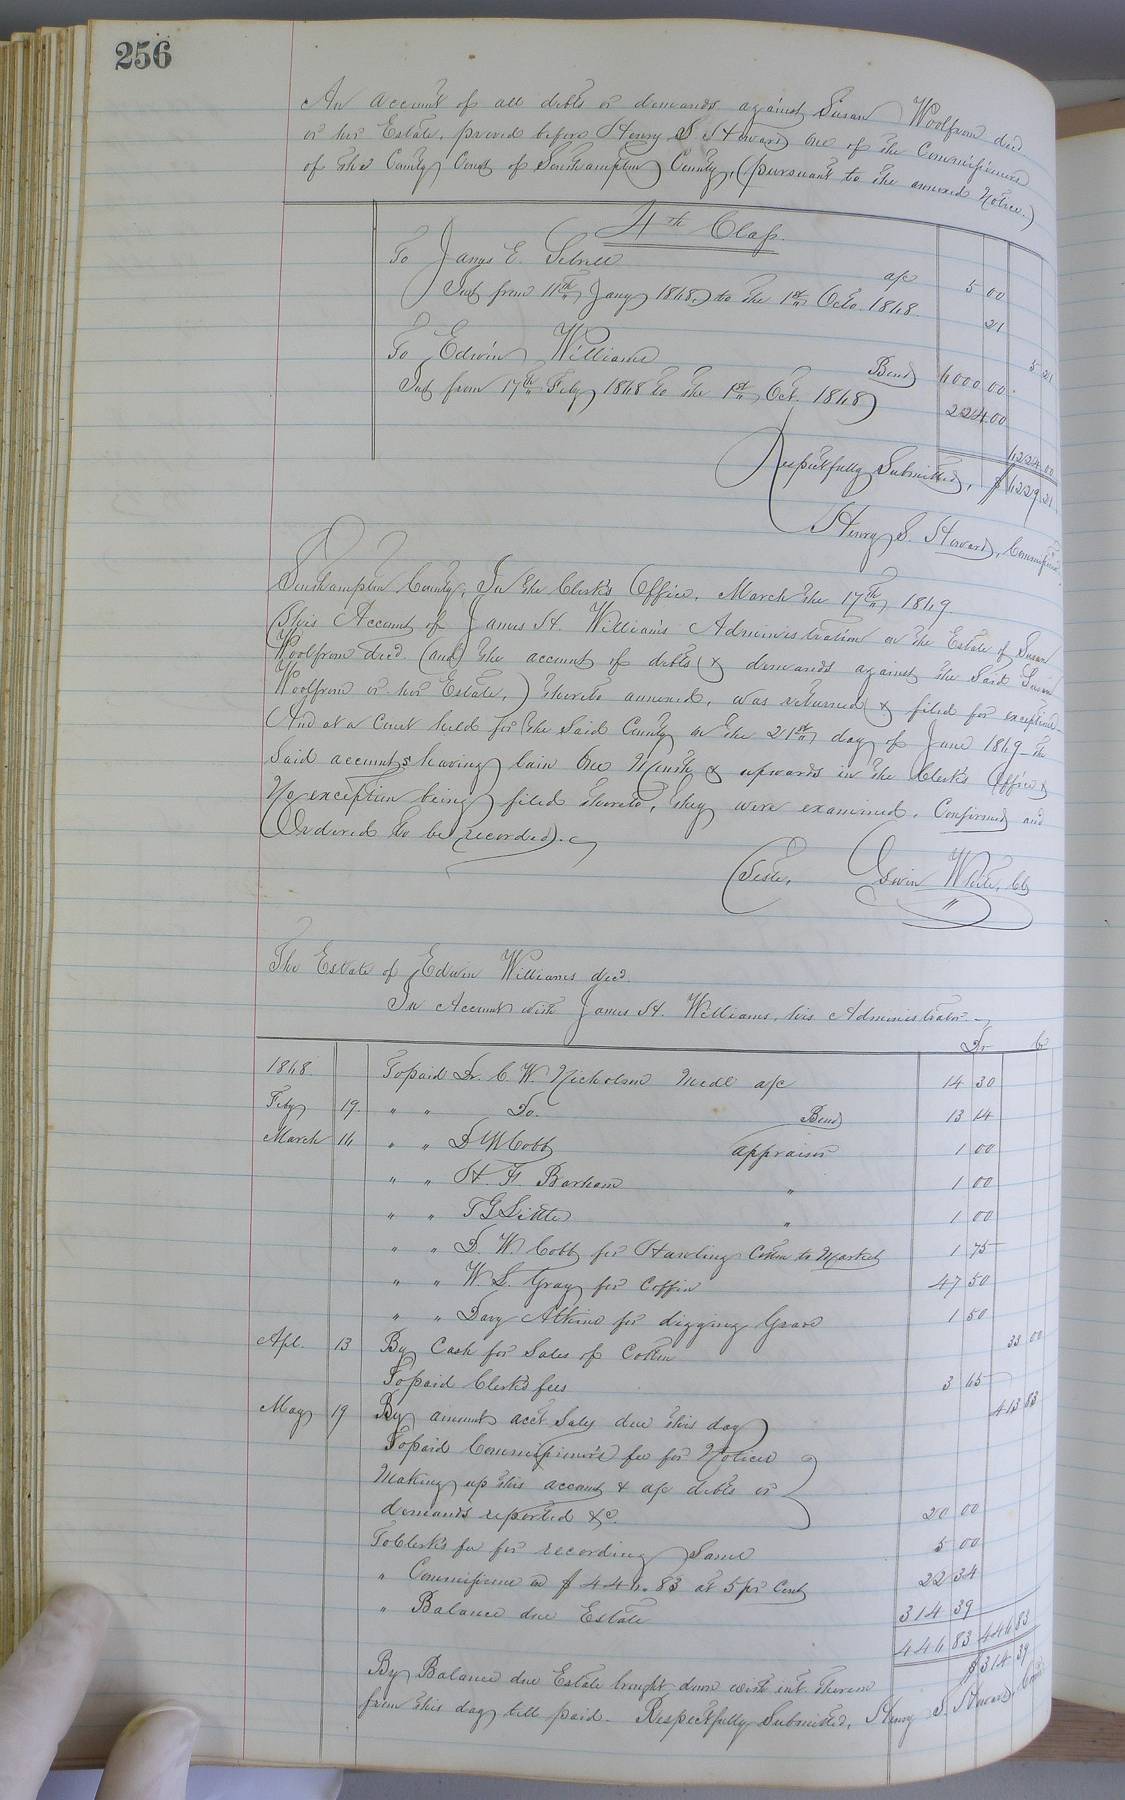 256
An account of all debts or demands against Susan Woolfrom decd
or her Estate, proved before Henry S Steward one of the Commissioners
of the County Court of Southampton County, (pursuant to the annexed Notice.)
4th Class.
To James E. Sebrell a/c 5 00
Int from 11th Jany 1868, to the 1st Octo. 1868 21
5 21
To Edwin Williams Bond 6000 00
Int from 17th Feby 1868 to the 1st Oct. 1868 224 00
6224 00
Respectfully Submitted, $ 6229 21
Henry S. Steward, Commissioner
Southampton County, In the Clerk's Office, March the 17th 1869.
This Account of James H. Williams Administration on the Estate of Susan
Woolfrom decd. (and the account of debts & demands against the said Susan
Woolfrom or her Estate,) thereto annexed, was returned & filed for exceptions
And at a Court held for the Said County on the 21st day of June 1869 - the
Said accounts having lain One Month & upwards in the Clerk's Office &
No exception being filed thereto, they were examined, Confirmed and
Ordered to be recorded.
Teste, Edwin White, Clk
The Estate of Edwin Williams decd.
In Account with James H. Williams, his Administrator.
Dr Cr
1868 To paid Dr. C. W. Nicholson Medl a/c 14 30
Feby 19. " " Do. Bond 13 14
March 16 " " D W Cobb appraiser 1 00
" " H. F. Barham " 1 00
" " T G Little " 1 00
" " D. W. Cobb for Hawling Cotton to Market 1 75
" " W. S. Gray for Coffin 47 50
" " Davy Atkins for digging Grave 1 50
Apl. 13 By Cash for Sales of Cotton 33 00
To paid Clerks fees 3 65
May 19 By amount acct Sales due this day 413 83
To paid Commissioner's fee for Notices
Making up this account & a/c debts or
demands reported &c. 20 00
To Clerks fee for recording Same 5 00
" Commissions on $446.83 at 5 pr Cent 22 34
" Balance due Estate 314 39
446 83 446 83
By Balance due Estate brought down with int. thereon $314 39
from this day till paid. Respectfully Submitted, Henry S. Steward, Comr